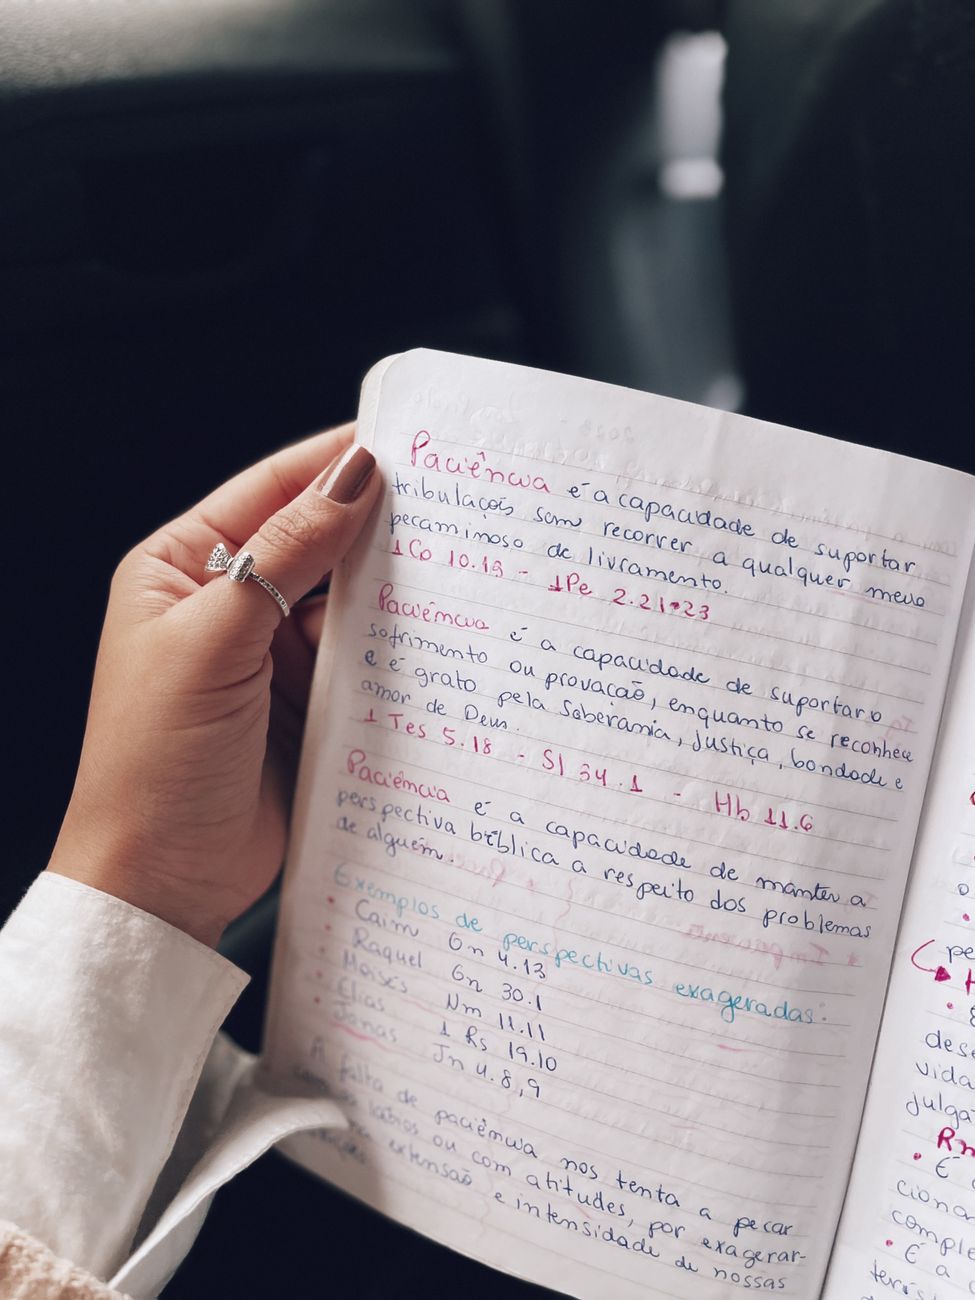 Paciência é a capacidade de suportar
tribulações sem recorrer a qualquer meio
pecaminoso de livramento.
1Co 10.13 - 1Pe 2.21-23
Paciência é a capacidade de suportar o
sofrimento ou provação, enquanto se reconhece
e é grato pela soberania, justiça, bondade e
amor de Deus.
1 Tes 5.18 - Sl 34.1 - Hb 11.6
Paciência é a capacidade de manter a
perspectiva bíblica a respeito dos problemas
de alguém.
Exemplos de perspectivas exageradas:
• Caim Gn 4.13
• Raquel Gn 30.1
• Moisés Nm 11.11
• Elias 1 Rs 19.10
• Jonas Jn 4.8,9
A falta de paciência nos tenta a pecar
com lábios ou com atitudes, por exagerar-
extensão e intensidade de nossas
o
pe
dese
vida
julga
Rm
• É
ciona
comple
• É a